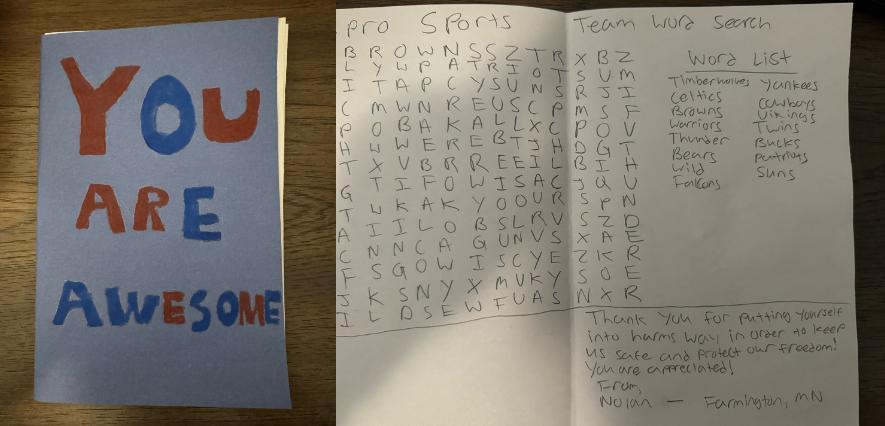 YOU
ARE
AWESOME
Pro Sports Team Word Search
B R O W N S S Z T R X B Z
L Y U P A T R I O T S U M
I T A P C Y S U N S R J I
C M W N R E U S C P M S F
P O B A K A L L X C P O V
H W W E R E B T J H D G T
T X V B R R E E I L B I H
G T I F O W I S A C J Q U
T L K A K Y O O U R S P N
A I I L O B S L R V S Z D
C N N C A G U N V S X A E
F S G O W I S C Y E Z K R
J K S N Y X M U K Y S O E
I L D S E W F U A S N X R
Word List
Timberwolves Yankees
Celtics Cowboys
Browns Vikings
Warriors Twins
Thunder Bucks
Bears Patriots
Wild Suns
Falcons
Thank you for putting yourself
into harms way in order to keep
us safe and protect our freedom!
You are appreciated!
From,
Nolan — Farmington, MN